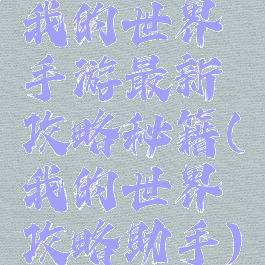 我的世界
手游最新
攻略秘籍(
我的世界
攻略助手)